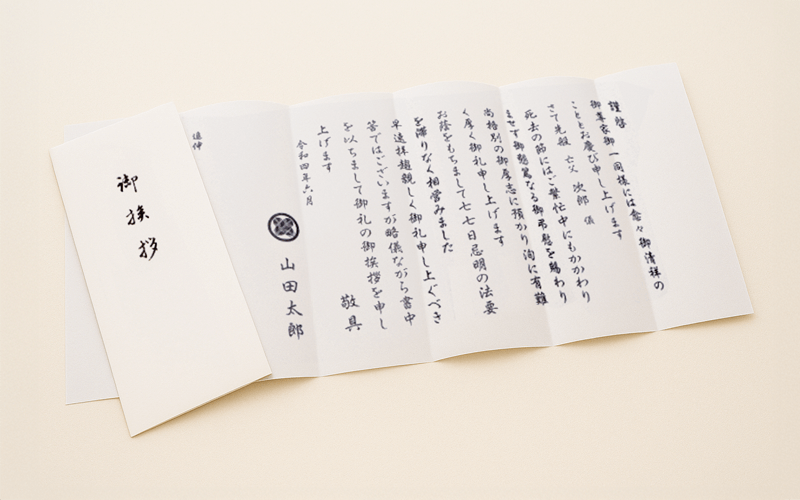 御挨拶
謹啓
御尊家御一同様には愈々御清祥の
こととお慶び申し上げます
さて先般 亡父 次郎 儀
死去の節にはご繁忙中にもかかわり
ませず御懇篤なる御弔慰を賜わり
尚格別の御厚志に預かり洵に有難
く厚く御礼申し上げます
お蔭をもちまして七七日忌明の法要
を滞りなく相営みました
早速拝趨親しく御礼申し上ぐべき
筈ではございますが略儀ながら書中
を以ちまして御礼の御挨拶を申し
上げます
敬具
令和四年六月
山田太郎
追伸